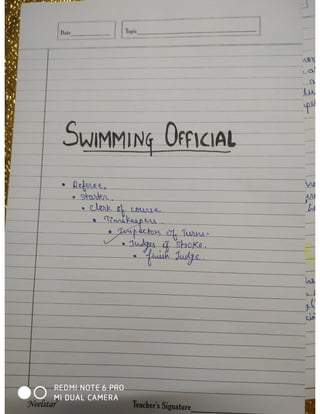 Date
Topic
SWIMMING OFFICIAL
• Referee.
• Starter.
• Clerk of course
• Timekeepers
• Inspector of Turns.
• Judges of Stroke.
• finish Judge.
Neelstar
Teacher's Signature
REDMI NOTE 6 PRO
MI DUAL CAMERA